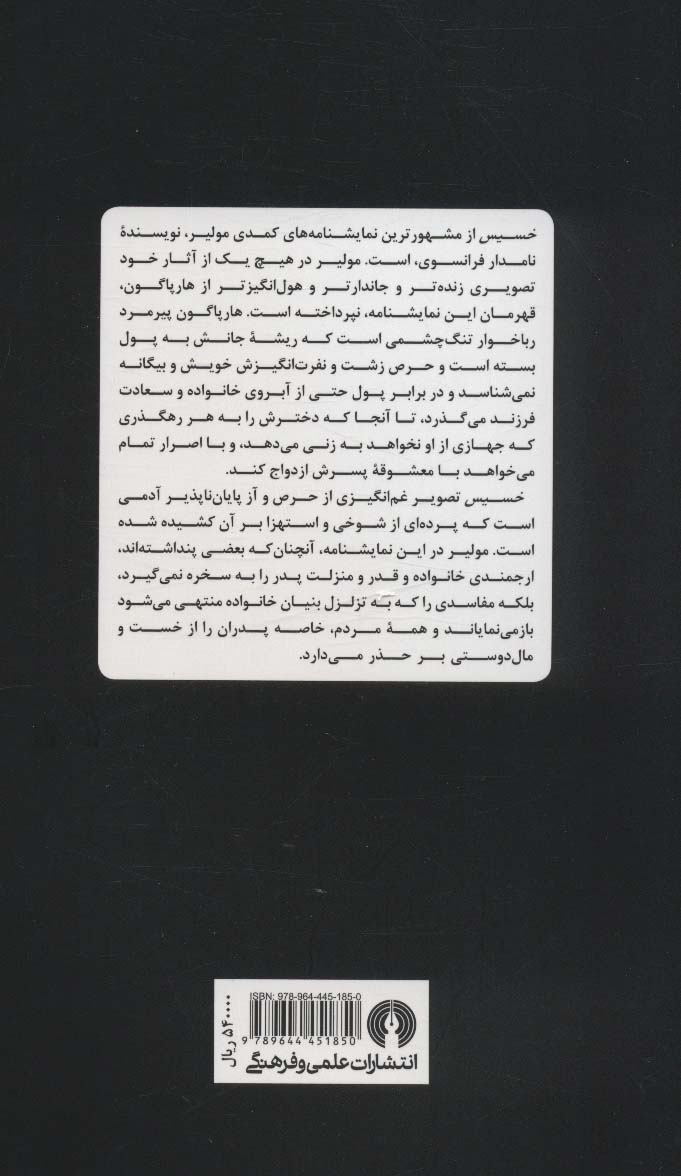 خسیس از مشهورترین نمایشنامه‌های کمدی مولیر، نویسندهٔ
نامدار فرانسوی، است. مولیر در هیچ یک از آثار خود
تصویری زنده‌تر و جاندارتر و هول‌انگیزتر از هارپاگون،
قهرمان این نمایشنامه، نپرداخته است. هارپاگون پیرمرد
رباخوار تنگ‌چشمی است که ریشهٔ جانش به پول
بسته است و حرص زشت و نفرت‌انگیزش خویش و بیگانه
نمی‌شناسد و در برابر پول حتی از آبروی خانواده و سعادت
فرزند می‌گذرد، تا آنجا که دخترش را به هر رهگذری
که جهازی از او نخواهد به زنی می‌دهد، و با اصرار تمام
می‌خواهد با معشوقهٔ پسرش ازدواج کند.
خسیس تصویر غم‌انگیزی از حرص و آز پایان‌ناپذیر آدمی
است که پرده‌ای از شوخی و استهزا بر آن کشیده شده
است. مولیر در این نمایشنامه، آنچنان‌که بعضی پنداشته‌اند،
ارجمندی خانواده و قدر و منزلت پدر را به سخره نمی‌گیرد،
بلکه مفاسدی را که به تزلزل بنیان خانواده منتهی می‌شود
بازمی‌نمایاند و همهٔ مردم، خاصه پدران را از خست و
مال‌دوستی بر حذر می‌دارد.
ISBN: 978-964-445-185-0
9 789644 451850
انتشارات علمی و فرهنگی
۵۴۰۰۰۰ ریال